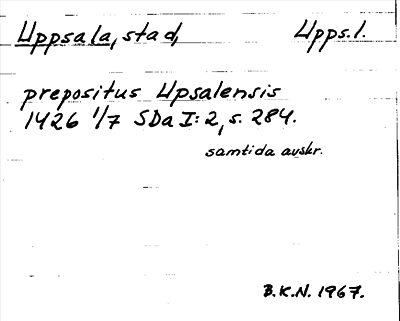 Uppsala, stad, Upps.l.
prepositus Upsalensis
1426 1/7 SDa I:2, s. 284.
samtida avskr.
B.K.N. 1967.